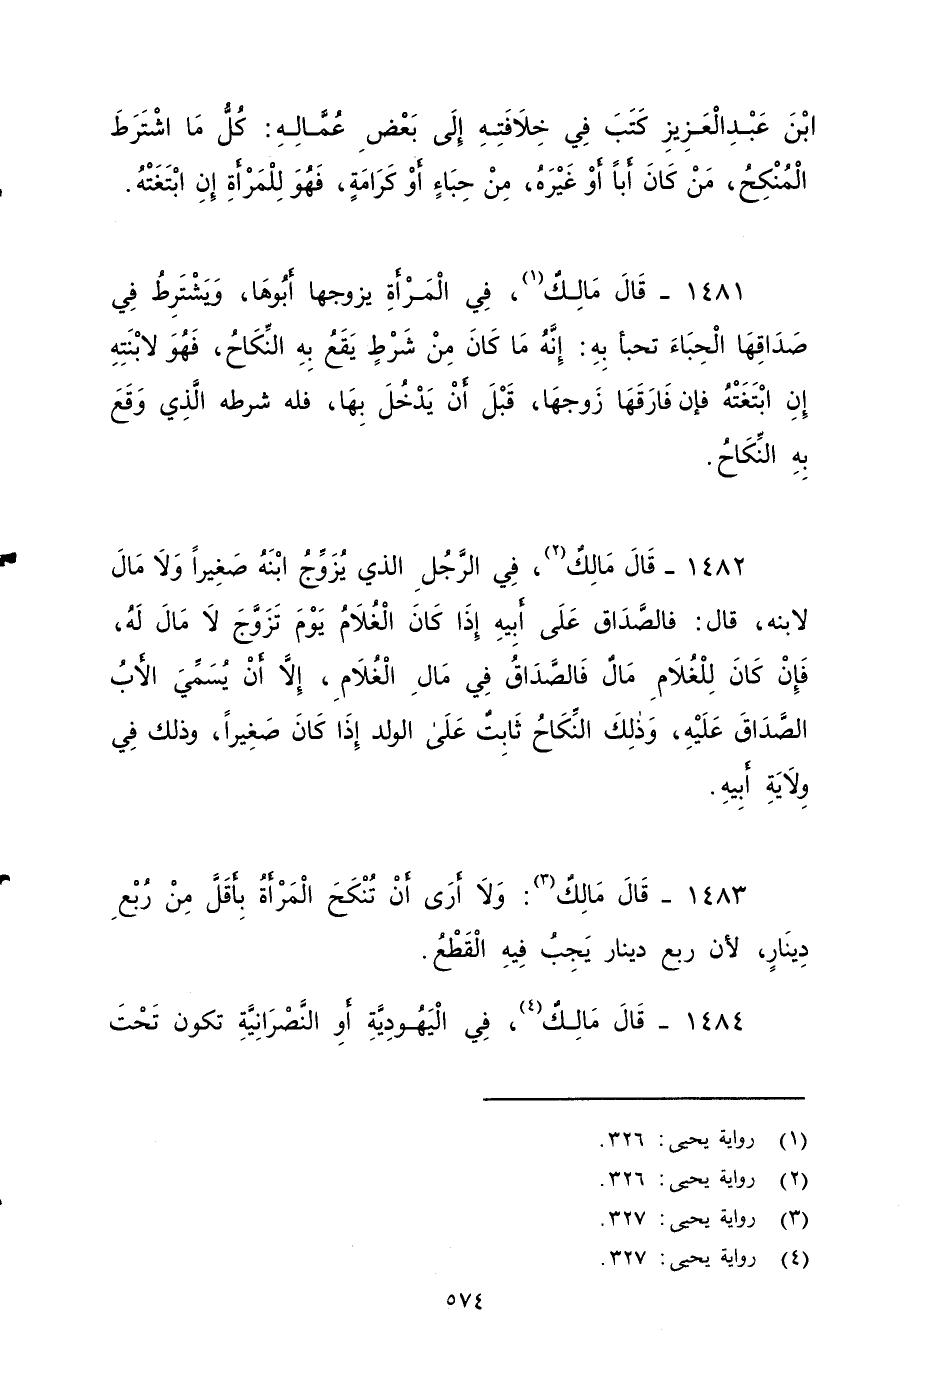 ابْنَ عَبْدِالْعَزِيزِ كَتَبَ فِي خِلَافَتِهِ إِلَى بَعْضِ عُمَّالِهِ: كُلُّ مَا اشْتَرَطَ
الْمُنْكِحُ، مَنْ كَانَ أَباً أَوْ غَيْرَهُ، مِنْ حِبَاءٍ أَوْ كَرَامَةٍ، فَهُوَ لِلْمَرْأَةِ إِنِ ابْتَغَتْهُ.
١٤٨١ - قَالَ مَالِكٌ(١)، فِي الْمَرْأَةِ يزوجها أَبُوهَا، وَيَشْتَرِطُ فِي
صَدَاقِهَا الْحِبَاءَ تحبأ بِهِ: إِنَّهُ مَا كَانَ مِنْ شَرْطٍ يَقَعُ بِهِ النِّكَاحُ، فَهُوَ لابْنَتِهِ
إِنِ ابْتَغَتْهُ فإن فَارَقَهَا زَوجهَا، قَبْلَ أَنْ يَدْخُلَ بِهَا، فله شرطه الَّذِي وَقَعَ
بِهِ النِّكَاحُ.
١٤٨٢ - قَالَ مَالِكٌ(٢)، فِي الرَّجُلِ الذي يُزَوِّجُ ابْنَهُ صَغِيراً وَلَا مَالَ
لابنه، قال: فالصَّدَاق عَلَى أَبِيهِ إِذَا كَانَ الْغُلَامُ يَوْمَ تَزَوَّجَ لَا مَالَ لَهُ،
فَإِنْ كَانَ لِلْغُلَامِ مَالٌ فَالصَّدَاقُ فِي مَالِ الْغُلَامِ، إِلَّا أَنْ يُسَمِّيَ الأَبُ
الصَّدَاقَ عَلَيْهِ، وَذٰلِكَ النِّكَاحُ ثَابِتٌ عَلَىٰ الولد إِذَا كَانَ صَغِيراً، وذلك فِي
وِلَايَةِ أَبِيهِ.
١٤٨٣ - قَالَ مَالِكٌ(٣): وَلَا أَرَى أَنْ تُنْكَحَ الْمَرْأَةُ بِأَقَلَّ مِنْ رُبْعِ
دِينَارٍ، لأن ربع دينار يَجِبُ فِيهِ الْقَطْعُ.
١٤٨٤ - قَالَ مَالِكٌ(٤)، فِي الْيَهُودِيَّةِ أَوِ النَّصْرَانِيَّةِ تكون تَحْتَ
(١) رواية يحيى: ٣٢٦.
(٢) رواية يحيى: ٣٢٦.
(٣) رواية يحيى: ٣٢٧.
(٤) رواية يحيى: ٣٢٧.
٥٧٤